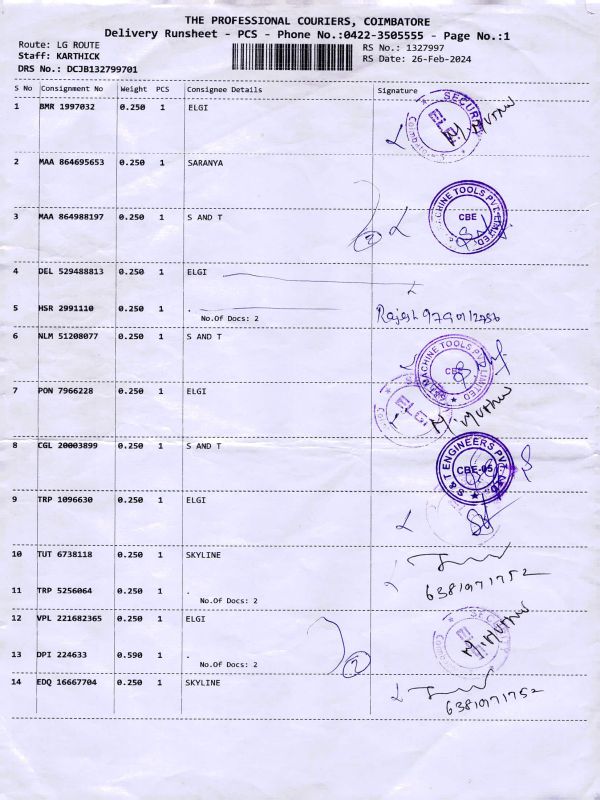 THE PROFESSIONAL COURIERS, COIMBATORE
Delivery Runsheet - PCS - Phone No.:0422-3505555 - Page No.:1
Route: LG ROUTE RS No.: 1327997
Staff: KARTHICK RS Date: 26-Feb-2024
DRS No.: DCJB132799701
S No Consignment No Weight PCS Consignee Details Signature
1 BMR 1997032 0.250 1 ELGI
SECURITY
M. Muthu
2 MAA 864695653 0.250 1 SARANYA
MACHINE TOOLS PVT. LIMITED
CBE
3 MAA 864988197 0.250 1 S AND T
2
4 DEL 529488813 0.250 1 ELGI
5 HSR 2991110 0.250 1 .
No.Of Docs: 2
Rajesh
6 NLM 51208077 0.250 1 S AND T
S&T MACHINE TOOLS PVT. LIMITED
CBE
7 PON 7966228 0.250 1 ELGI
ELGI
M. Muthu
8 CGL 20003899 0.250 1 S AND T
S & T ENGINEERS PVT. LTD.
CBE-05
9 TRP 1096630 0.250 1 ELGI
10 TUT 6738118 0.250 1 SKYLINE
6381971752
11 TRP 5256064 0.250 1 .
No.Of Docs: 2
12 VPL 221682365 0.250 1 ELGI
SECURITY
M. Muthu
13 DPI 224633 0.590 1 .
No.Of Docs: 2
2
14 EDQ 16667704 0.250 1 SKYLINE
6381971752